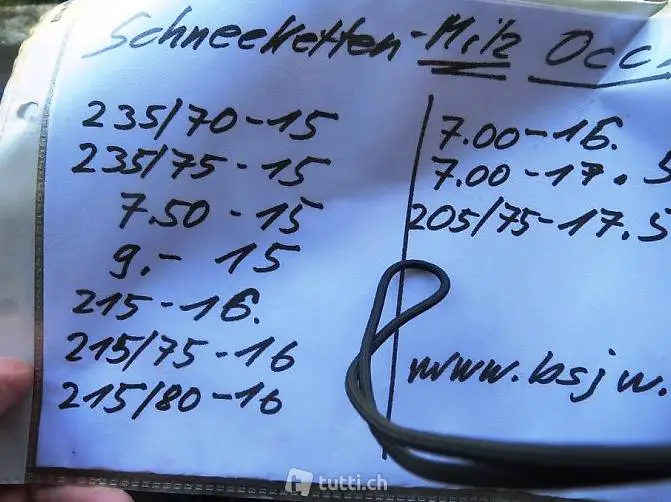 Schneeketten-Milz Occ
235/70-15
235/75-15
7.50-15
9.- 15
215-16.
215/75-16
215/80-16
7.00-16.
7.00-17.5
205/75-17.5
www.bsjw.
tutti.ch